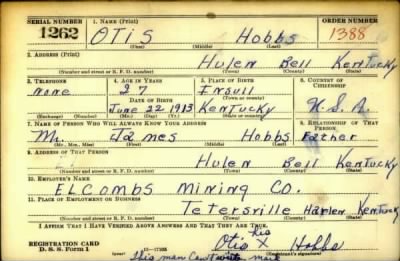 SERIAL NUMBER 1. NAME (Print) ORDER NUMBER
1262 OTIS HOBBS 1388
(First) (Middle) (Last)
2. ADDRESS (Print)
Hulen Bell Kentucky
(Number and street or R. F. D. number) (Town) (County) (State)
3. TELEPHONE 4. AGE IN YEARS 5. PLACE OF BIRTH 6. COUNTRY OF CITIZENSHIP
None 27 Insull
DATE OF BIRTH (Town or county)
June 22 1913 Kentucky U.S.A.
(Exchange) (Number) (Mo.) (Day) (Yr.) (State or country)
7. NAME OF PERSON WHO WILL ALWAYS KNOW YOUR ADDRESS 8. RELATIONSHIP OF THAT PERSON
Mr. James Hobbs Father
(Mr., Mrs., Miss) (First) (Middle) (Last)
9. ADDRESS OF THAT PERSON
Hulen Bell Kentucky
(Number and street or R. F. D. number) (Town) (County) (State)
10. EMPLOYER'S NAME
ELCOMBS MINING CO.
11. PLACE OF EMPLOYMENT OR BUSINESS
Tetersville Harlen Kentucky
(Number and street or R. F. D. number) (Town) (County) (State)
I AFFIRM THAT I HAVE VERIFIED ABOVE ANSWERS AND THAT THEY ARE TRUE.
REGISTRATION CARD his
D. S. S. Form 1 Otis X Hobbs
(Registrant's signature)
This man cant write mark